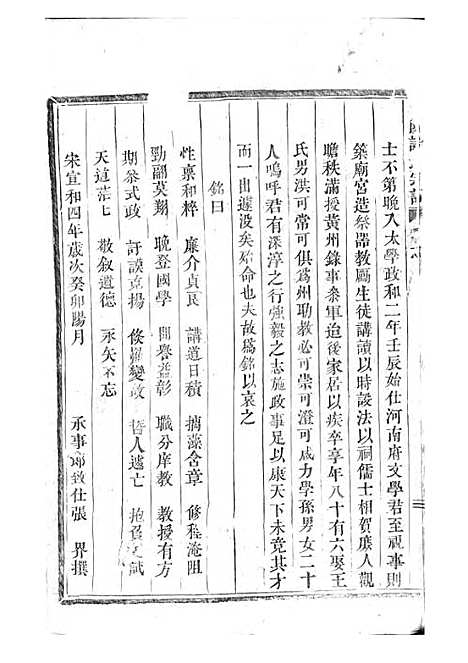 士不第晚入太學政和二年壬辰始仕河南府文學君至視事則
築廟宮造祭器教勵生徒講讀以時設法以祠儒士相賀庶人觀
瞻秩滿授黃州錄事參軍迫後家居以疾卒享年八十有六娶王
氏男洪可常可俱爲州助教必可崇可澄可咸力學孫男女二十
人嗚呼君有深淳之行強毅之志施政事足以康天下未竟其才
而一出遽没矣始命也夫故爲銘以哀之
銘曰
性稟和粹 廉介貞良 講道日積 摛藻含章 修程淹阻
勁翮莫翔 晚登國學 聞譽益彰 職分庠教 教授有方
期參式政 訏謨 揚 倏罹變故 哲人遽亡 抱
天道茫七 敬叙道德 永矢不忘
宋宣和四年歲次癸卯陽月 承事郎致仕張 界撰